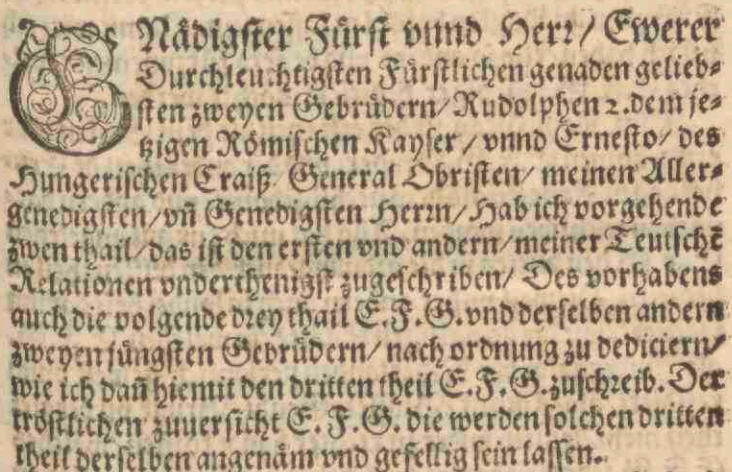 GNädigster Fürst vnnd Herr/ Ewerer
Durchleuchtigsten Fürstlichen genaden gelieb⸗
sten zweyen Gebrüdern/ Rudolphen 2. dem je⸗
tzigen Römischen Kayser / vnnd Ernesto/ des
Hungerischen Craiß General Obristen/ meinen Aller⸗
genedigsten/ vñ Genedigsten Herrn/ Hab ich vorgehende
zwen thail/ das ist den ersten vnd andern/ meiner Teutschē
Relationen vnderthenigst zugeschriben/ Des vorhabens
auch die volgende drey thail E.F.G. vnd derselben andern
zweyen jüngsten Gebrüdern/ nach ordnung zu dediciern/
wie ich dañ hiemit den dritten theil E.F.G. zuschreib. Der
tröstlichen zuuersicht E.F.G. die werden solchen dritten
theil derselben angenäm vnd gefellig sein lassen.